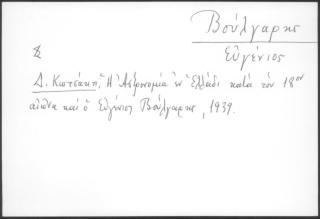 Βούλγαρης
Εὐγένιος
Δ. Κωτσάκη, Ἡ Ἀστρονομία ἐν Ἑλλάδι κατὰ τὸν 18ον
αἰῶνα καὶ ὁ Εὐγένιος Βούλγαρης, 1939.